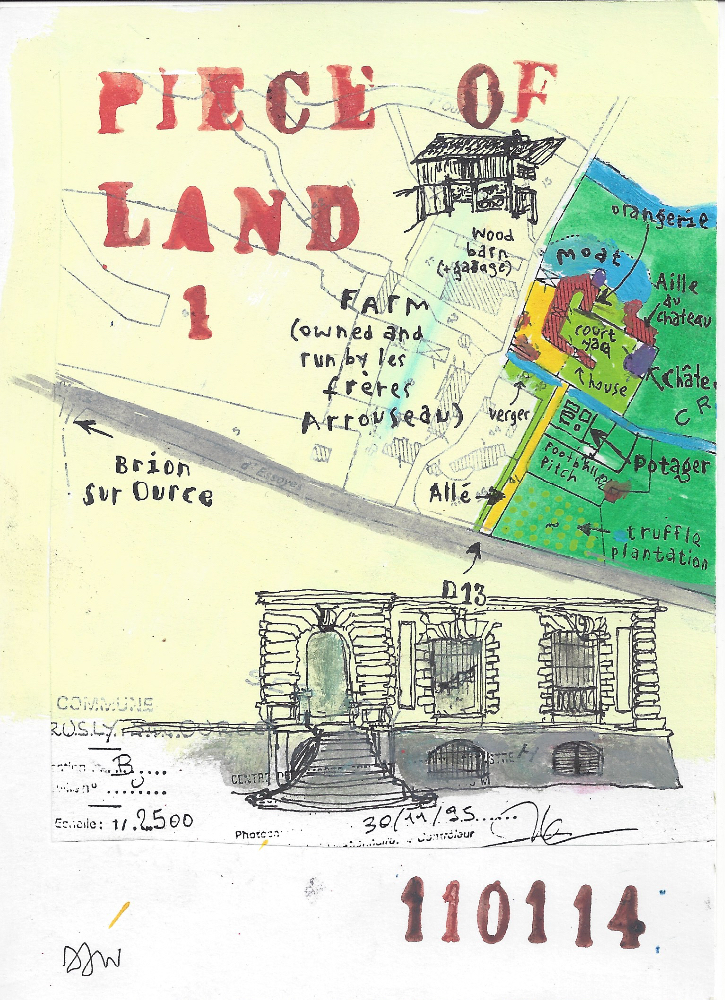 PIECE OF
LAND
1
orangerie
moat
wood
barn
(+garage)
Aille
du
chateau
FARM
(owned and
run by les
frères
Arrouseau)
court
yard
house
Châte
C R
verger
potager
Football
Pitch
Brion
sur Ource
d'Essoyes
Allé
truffle
plantation
D13
COMMUNE
B
Echelle: 1/.2500
30/11/95......
Contrôleur
110114